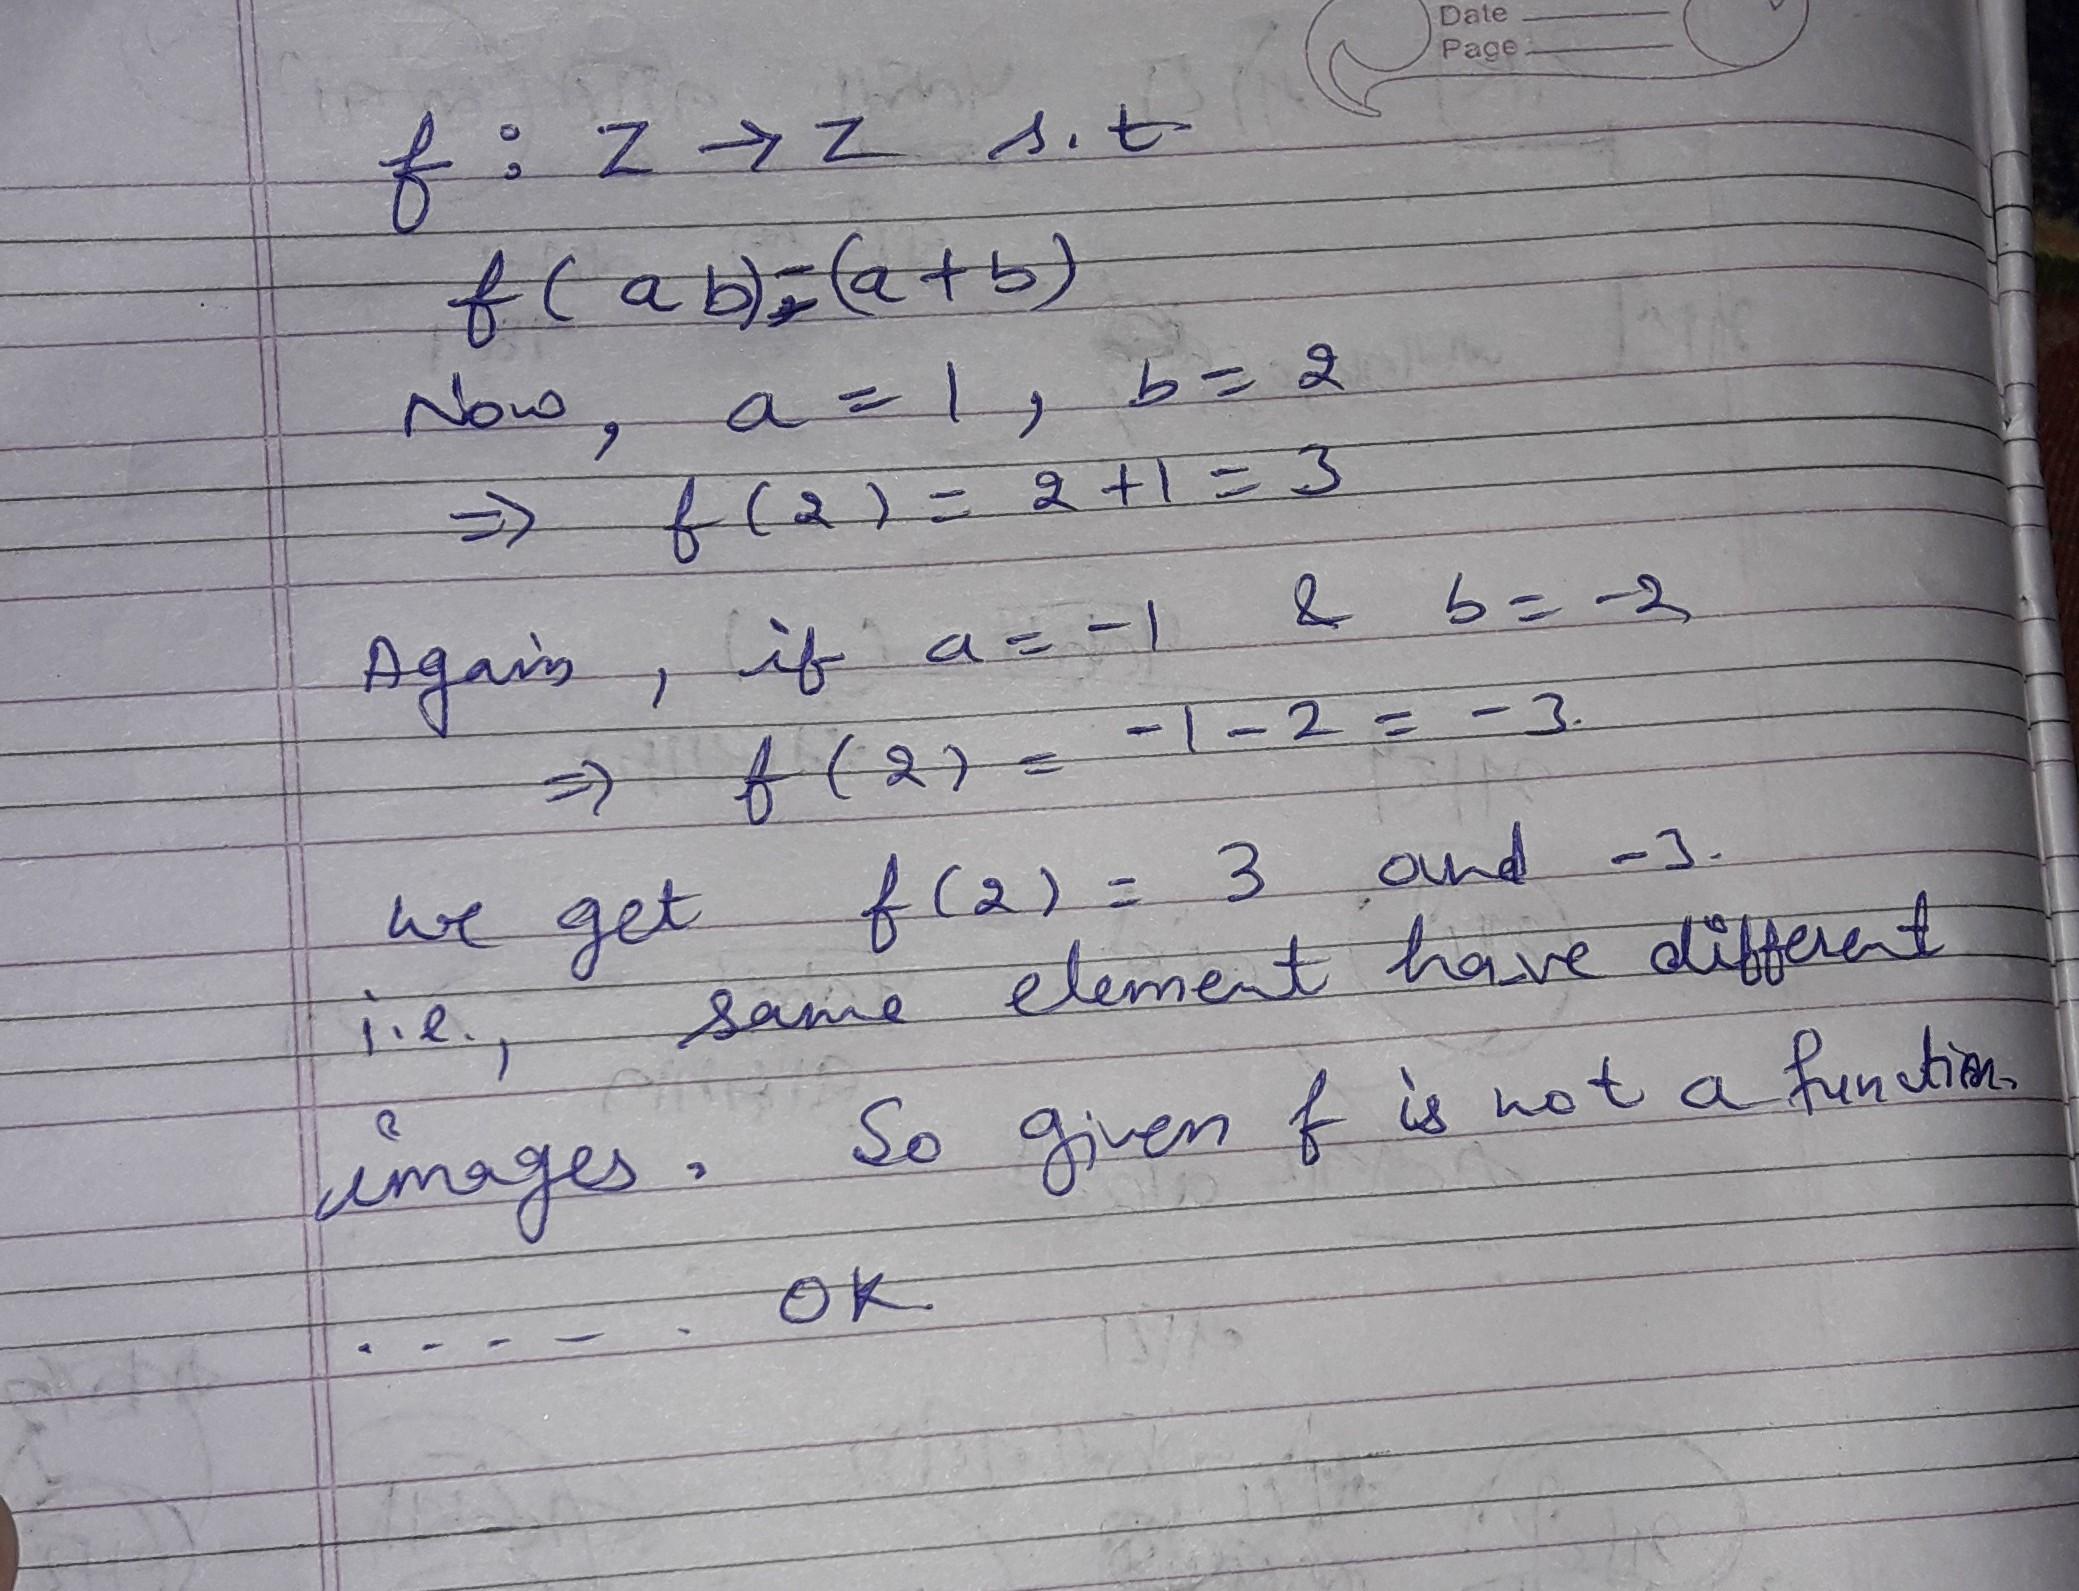 Date
Page
f : Z → Z s.t
f(ab) = (a+b)
Now, a = 1, b = 2
⇒ f(2) = 2+1 = 3
Again, if a = -1 & b = -2
⇒ f(2) = -1-2 = -3.
we get f(2) = 3 and -3.
i.e., same element have different
images. So given f is not a function.
..... OK.